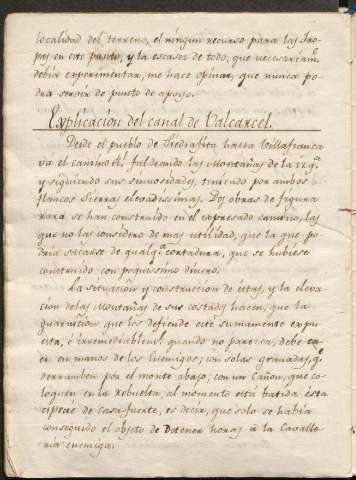 localidad del terreno, el ningun recurso para las tro-
pas en este punto, y la escases de todo, que necesariam.te
debia experimentar, me hace opinar, que nunca po-
dra servir de punto de apoyo.
Explicacion del canal de Valcarcel.
Desde el pueblo de Piedrafita hasta Villafranca
va el camino R.l faldeando las Montañas de la izq.da
y siguiendo sus sinuosidades, teniendo por ambos
flancos Sierras elevadissimas. Dos obras de figura
rara se han construido en el expresado camino, las
que no las considero de mas utilidad, que la que po-
dria sacarse de qualq.a cortadura, que se hubiese
construido con poquissimo dinero.
La situacion y construccion de estas, y la eleva-
cion de las Montañas de sus costados hacen, que la
guarnicion que los defiende esté sumamente expu-
esta, é irremediablem.te quando no paresca, debe ca-
er en manos de los Enemigos; con solas granadas, q.e
derrumben por el monte abajo, con un Cañon, que co-
loquen en la Rebuelta, al momento está batida esta
especie de casa-fuerte, es decir, que solo se habia
conseguido el objeto de Detener horas à la Cavalle-
ria enemiga.